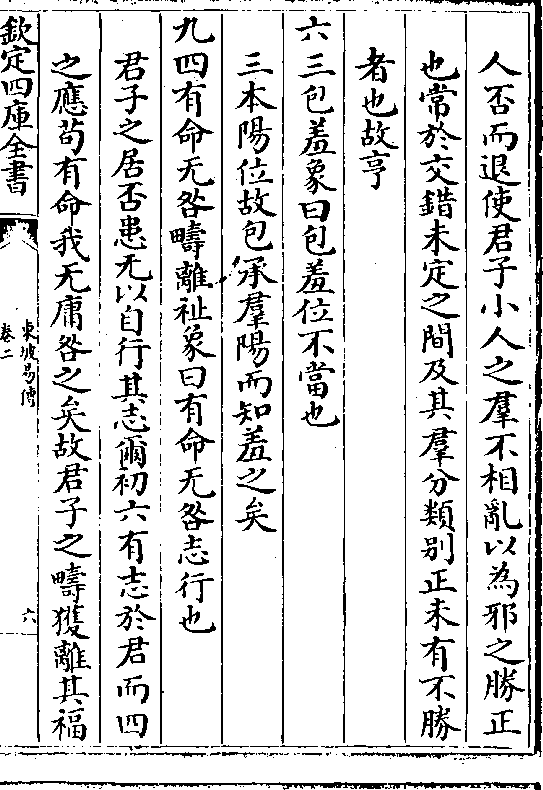 人否而退使君子小人之羣不相亂以為邪之勝正
也常於交錯未定之間及其羣分類别正未有不勝
者也故亨
六三包羞象曰包羞位不當也
三本陽位故包承羣陽而知羞之矣
九四有命无咎疇離祉象曰有命无咎志行也
君子之居否患无以自行其志爾初六有志於君而四
之應苟有命我无庸咎之矣故君子之疇獲離其福
欽定四庫全書
東坡易傳
卷二
六